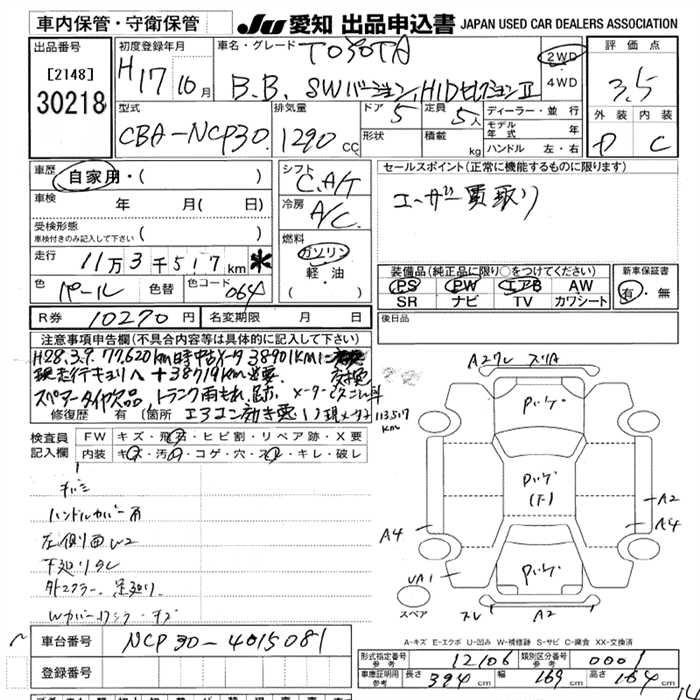 車内保管・守衛保管
JU 愛知 出品申込書 JAPAN USED CAR DEALERS ASSOCIATION
出品番号
[2148]
30218
初度登録年月
H17 10月
車名・グレード TOYOTA
B.B. SWバージョン, HIDセレクションII
2WD
・
4WD
評価点
3.5
外装 内装
D C
型式
CBA-NCP30
排気量
1290 CC
ドア 5
定員 5人
形状
積載 kg
ディーラー・並行
モデル年式 年
ハンドル 左・右
車歴
自家用・( )
車検
年 月( 日)
受検形態
車検付きのみ記入して下さい ( )
走行
11万3千517km *
色 パール 色替 色コード 064
R券 10270円 名変期限 月 日
シフト
C.A/T
冷房
A/C
燃料
ガソリン
・
軽・油
( )
セールスポイント(正常に機能するものに限ります)
ユーザー買取り
装備品(純正品に限り〇をつけてください)
PS PW エアB AW
SR ナビ TV カワシート
新車保証書
有・無
後日品
注意事項申告欄(不具合内容等は具体的に記入して下さい)
H28.3.9. 77,620km時中古メータ 38901kmに交換
現走行キョリへ +38719km必要
スペアータイヤ欠品, トランク雨もれ,
修復歴 有 (箇所 エアコン効き悪い) 現メータ 113,517km
検査員記入欄
FW キズ・飛石・ヒビ割・リペア跡・X要
内装 キズ・汚れ・コゲ・穴・スレ・キレ・破レ
ハンドルカバー
下廻りサビ
A2 スリA
パッケ
パッケ
パッケ
A2
A4
A4
UA1
スペア
スレ
A2
A-キズ E-エクボ U-凹み W-補修跡 S-サビ C-腐食 XX-交換済
車台番号 NCP30-4015081
登録番号
形式指定番号 参考 12106 類別区分番号 参考 0001
車庫証明用 参考 長さ 394cm 幅 169cm 高さ 164cm